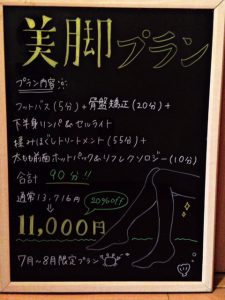 美脚プラン
プラン内容
フットバス(5分)+骨盤矯正(20分)+
下半身リンパ&セルライト
揉みほぐしトリートメント(55分)+
太もも前面ホットパック&リフレクソロジー(10分)
合計 90分!!
通常13,716円
20%off
11,000円
7月~8月限定プラン